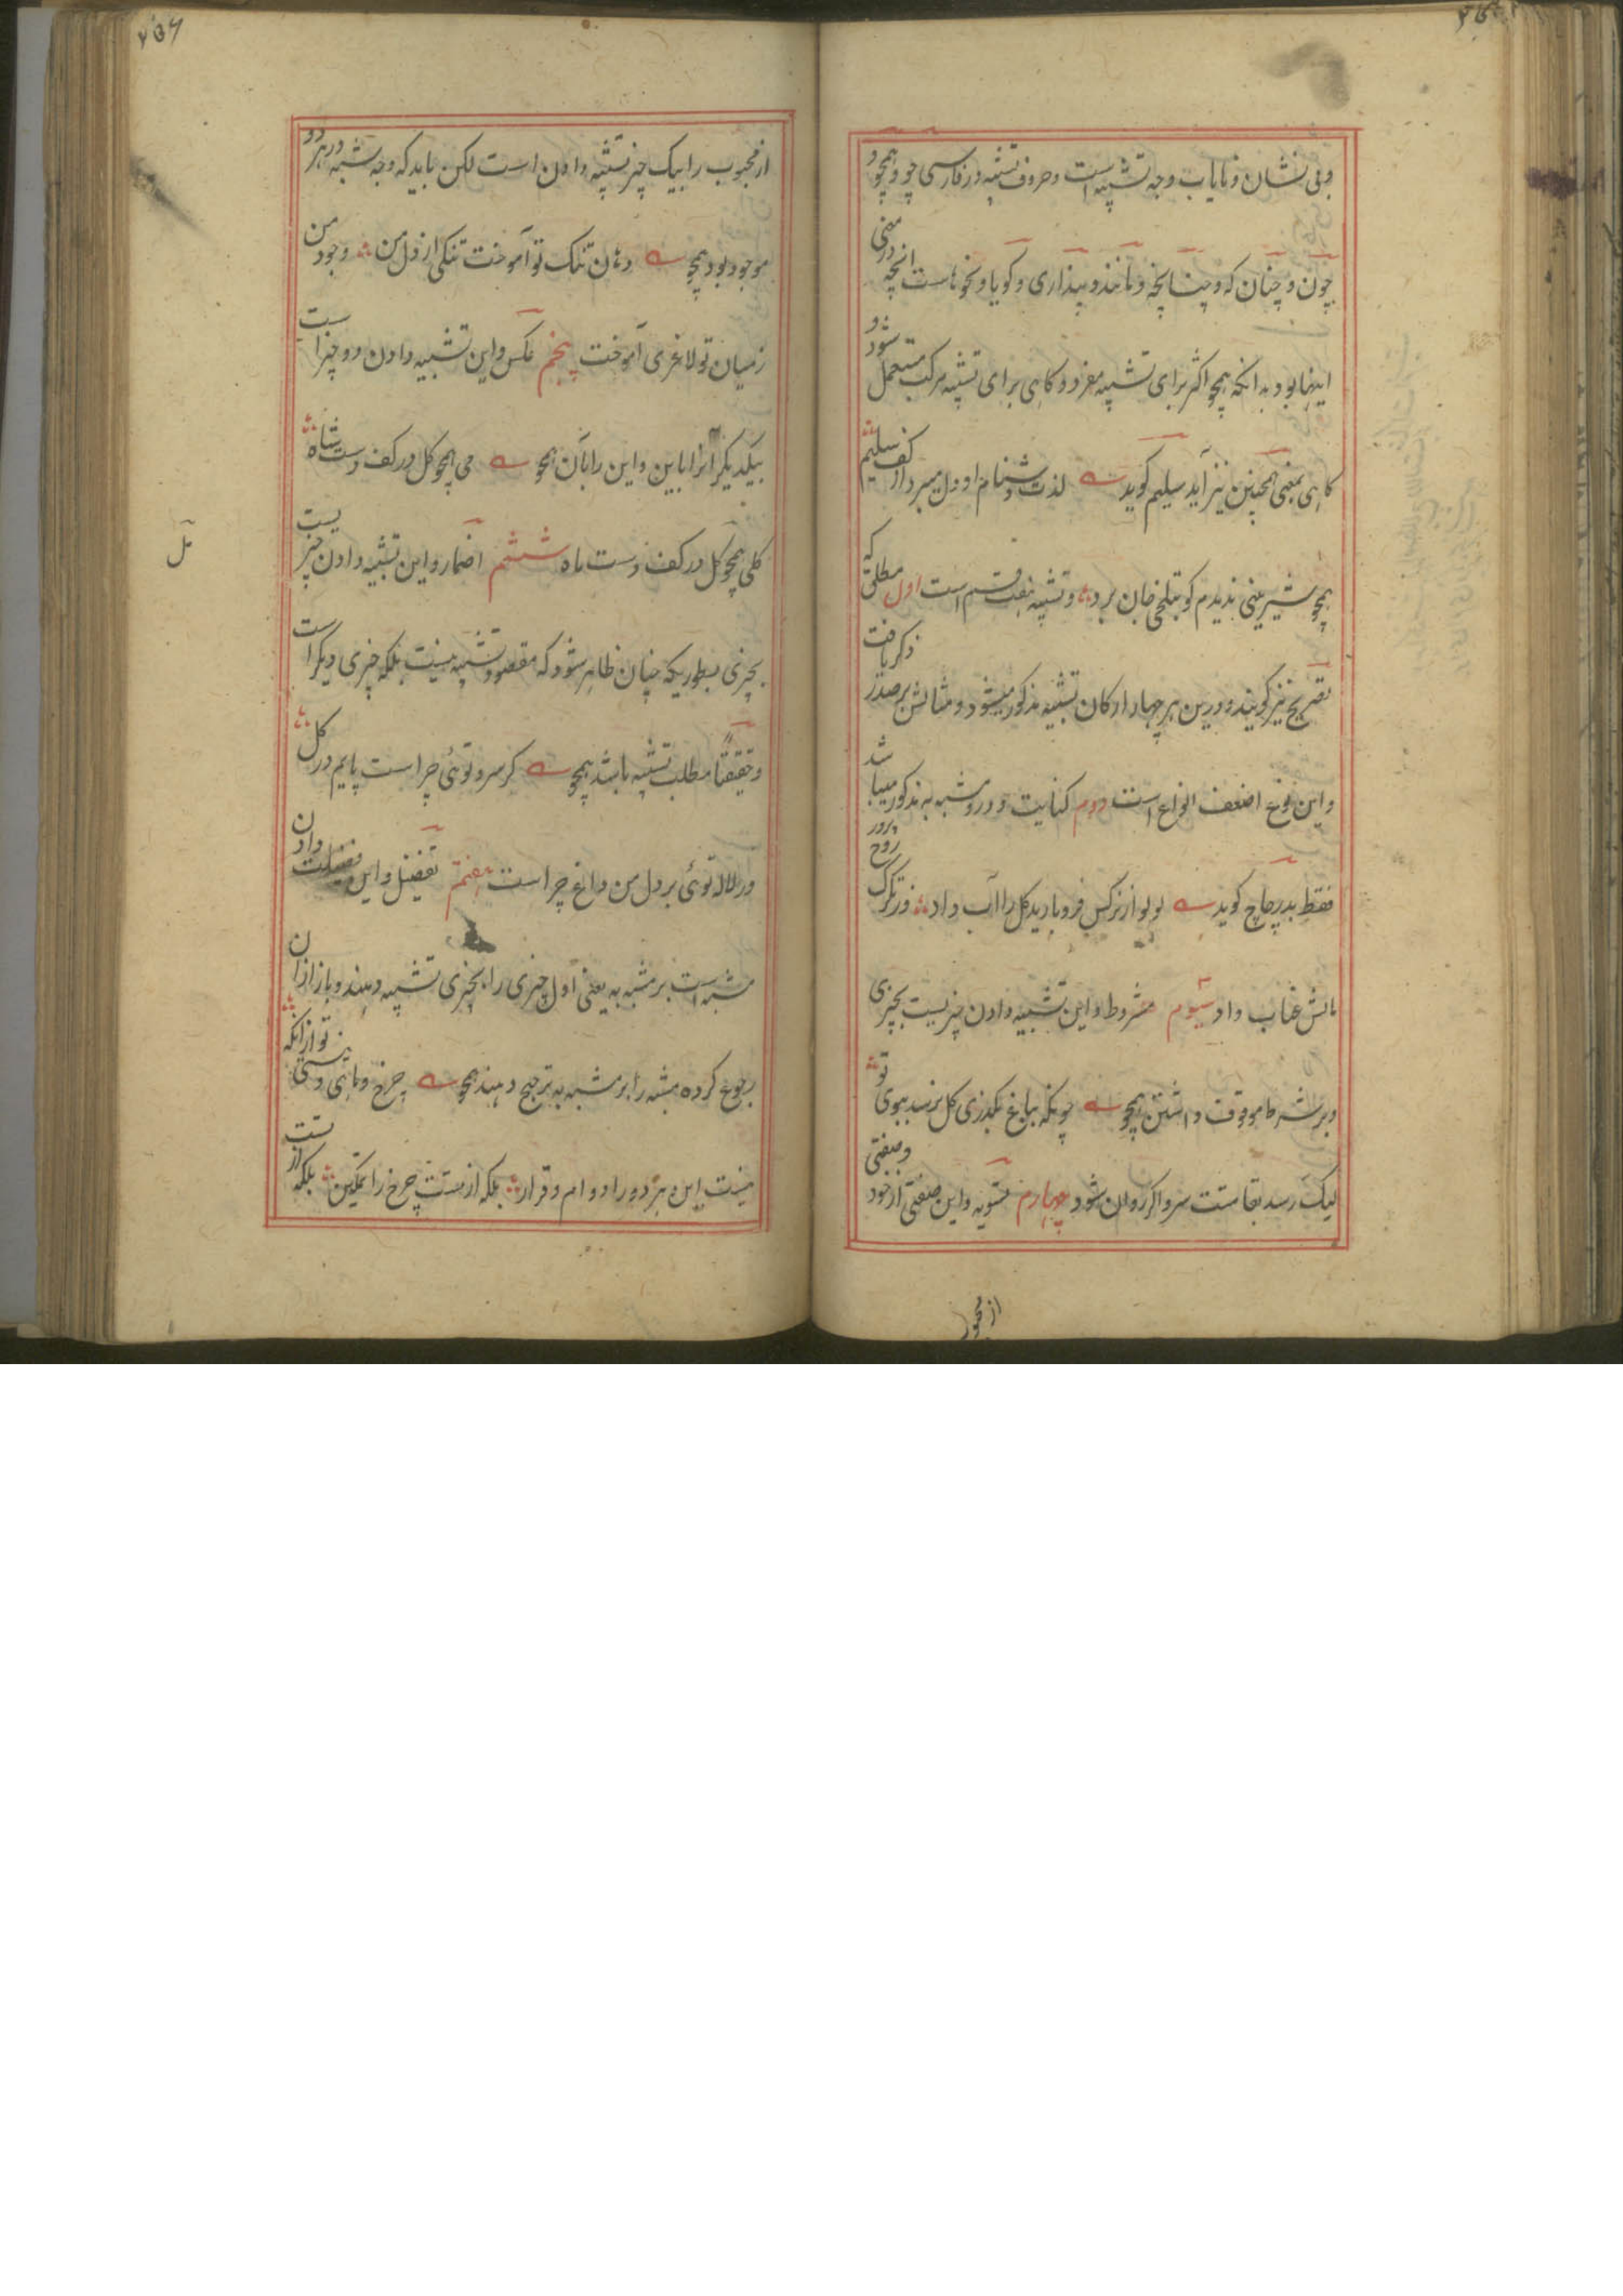 وبی نشان و نایاب وجه تشبیه است و حروف تشبیه در فارسی چو و همچو و
چون و چنان که و چنانچه و مانند و پنداری و گویا و نحوهاست انچه در معنی
اینها بود بدانکه همچو اکثر برای تشبیه مفرد و کاهی برای تشبیه مرکب مستعمل شود و
کاهی بمعنی همچنین نیز آید سلیم کوید لذت دشنام او دل میبرد از کف سلیم
همچو شیرینی ندیدم کو بتلخی جان برد و تشبیه هفت قسم است اول مطلق که
تصریح نیز کویند و درین هر چهار ارکان تشبیه مذکور میشود و مثالش بر صدر ذکر یافت
و این نوع اضعف انواع است دوم کنایت و درو مشبه به مذکور میباشد
فقط بدر چاچ کوید لولو از نرکس فرو بارید کل را آب داد وز تکرک روح پرور
مالش عناب داد سیوم مشروط و این تشبیه دادن چیزیست بچیزی
و بر شرط موقوف داشتن همچو چونکه بباغ بکذری کل نرسد ببوی تو
لیک رسد بقامتت سرو اکر روان شود چهارم تسویه و این صفتی از خود و صفتی
از محبوب
از محبوب را بیک چیز تشبیه دادن است لکن باید که وجه شبه در هر دو
موجود بود همچو دهان تنک تو آموخت تنکی از دل من وجود من
زمیان تو لاغری آموخت پنجم عکس و این تشبیه دادن دو چیز است
بیکدیکر آنرا باین و این را بآن همچو می همچو کل در کف دست شاه
کلی همچو مل در کف دست ماه ششم اضمار و این تشبیه دادن چیزیست
بچیزی بطوریکه چنان ظاهر شود که مقصود تشبیه نیست بلکه چیزی دیکر است
و حقیقتا مطلب تشبیه باشد همچو کر سرو توئی چراست پایم در کل
ور لاله توئی بر دل من داغ چراست هفتم تفضیل و این فضیلت دادن
مشبه است بر مشبه به یعنی اول چیزی را بچیزی تشبیه دهند و باز ازان
رجوع کرده مشبه را بر مشبه به ترجیح دهند همچو چرخ و ماهی و نیستی تو ازانکه
نیست این هر دو را دوام و قرار بلکه از تست چرخ را تمکین بلکه از تست
مل